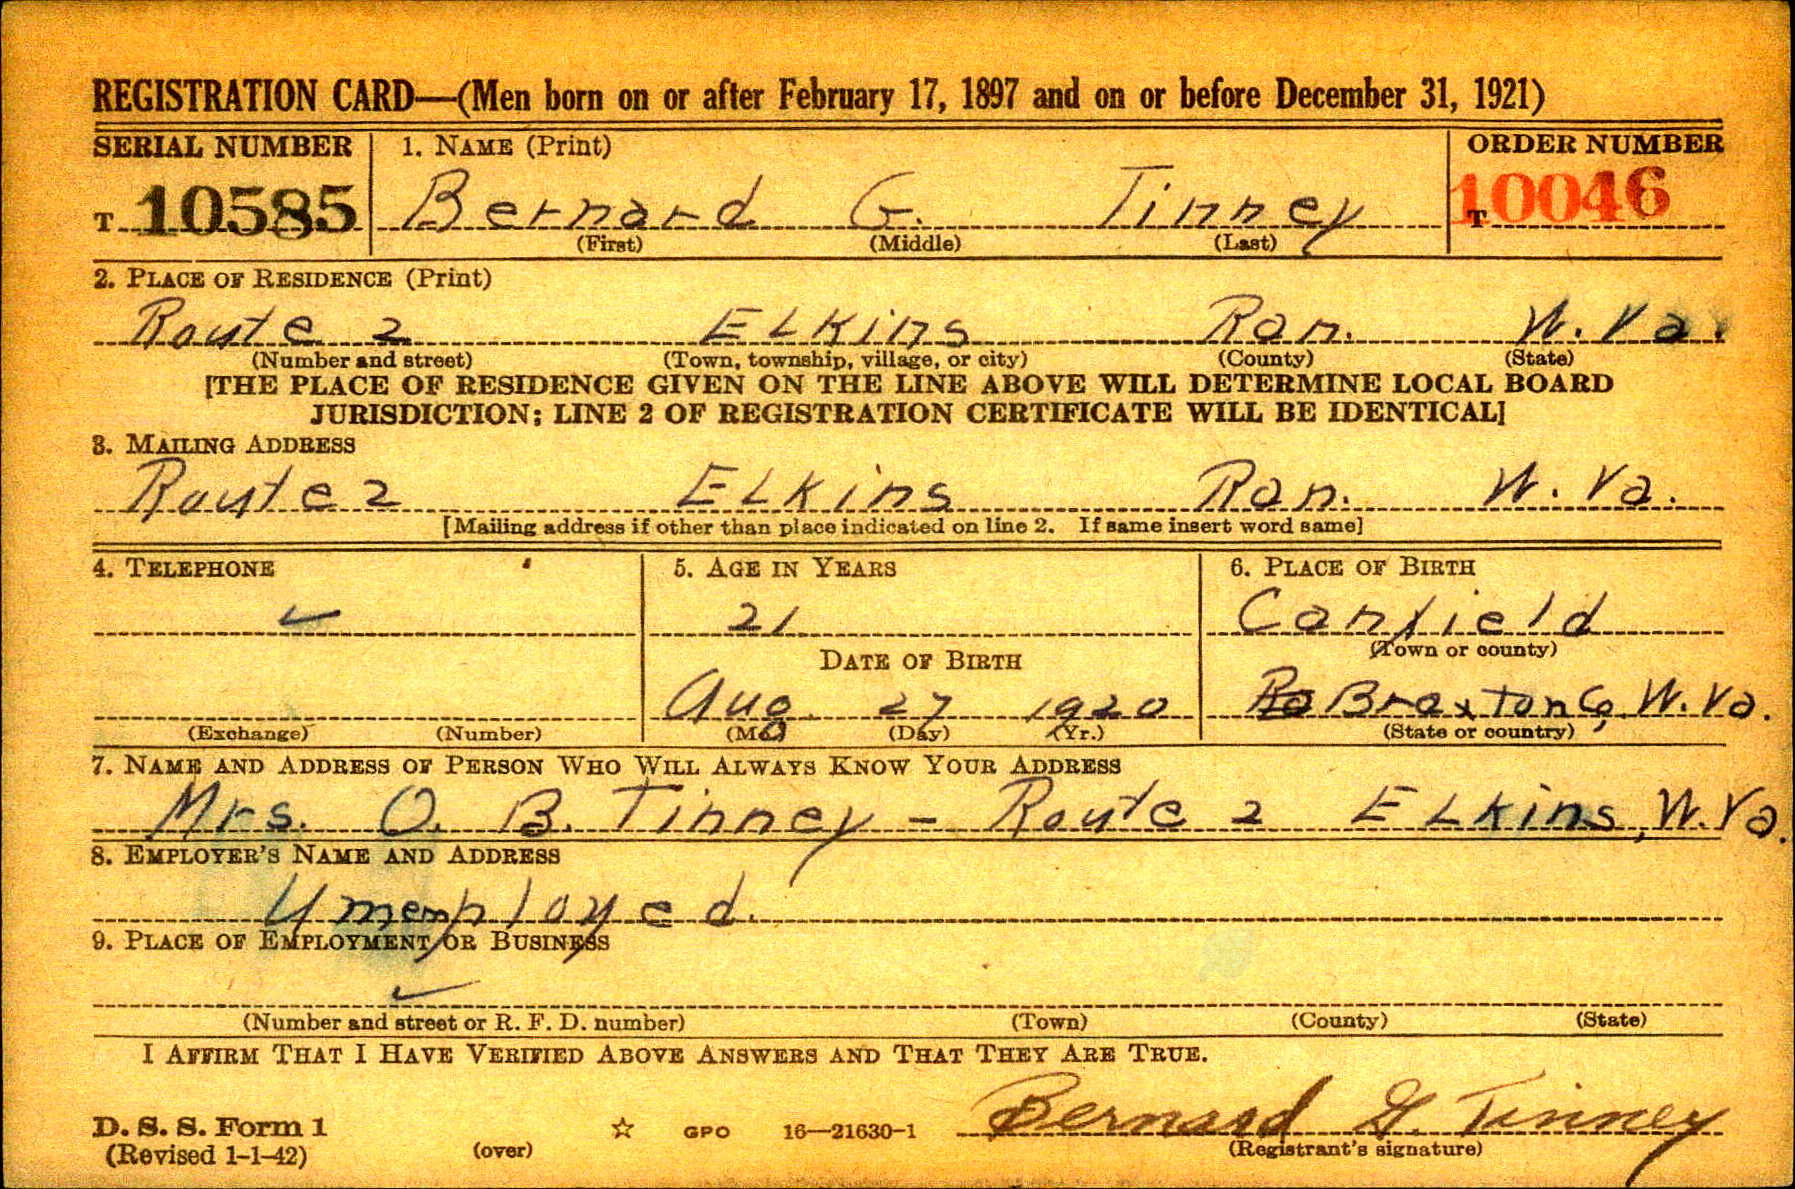 REGISTRATION CARD—(Men born on or after February 17, 1897 and on or before December 31, 1921)
SERIAL NUMBER 1. NAME (Print) ORDER NUMBER
T 10585 Bernard G. Tinney T 10046
(First) (Middle) (Last)
2. PLACE OF RESIDENCE (Print)
Route 2 ELKins Ran. W. Va.
(Number and street) (Town, township, village, or city) (County) (State)
[THE PLACE OF RESIDENCE GIVEN ON THE LINE ABOVE WILL DETERMINE LOCAL BOARD
JURISDICTION; LINE 2 OF REGISTRATION CERTIFICATE WILL BE IDENTICAL]
3. MAILING ADDRESS
Route 2 ELKins Ran. W. Va.
[Mailing address if other than place indicated on line 2. If same insert word same]
4. TELEPHONE 5. AGE IN YEARS 6. PLACE OF BIRTH
✓ 21 Canfield
(Town or county)
DATE OF BIRTH
Aug. 27 1920 Braxton Co, W. Va.
(Exchange) (Number) (Mo.) (Day) (Yr.) (State or country)
7. NAME AND ADDRESS OF PERSON WHO WILL ALWAYS KNOW YOUR ADDRESS
Mrs. O. B. Tinney - Route 2 ELKins, W. Va.
8. EMPLOYER'S NAME AND ADDRESS
Unemployed.
9. PLACE OF EMPLOYMENT OR BUSINESS
✓
(Number and street or R. F. D. number) (Town) (County) (State)
I AFFIRM THAT I HAVE VERIFIED ABOVE ANSWERS AND THAT THEY ARE TRUE.
Bernard G. Tinney
D. S. S. Form 1
(Revised 1-1-42) (over) ☆ GPO 16—21630-1 (Registrant's signature)